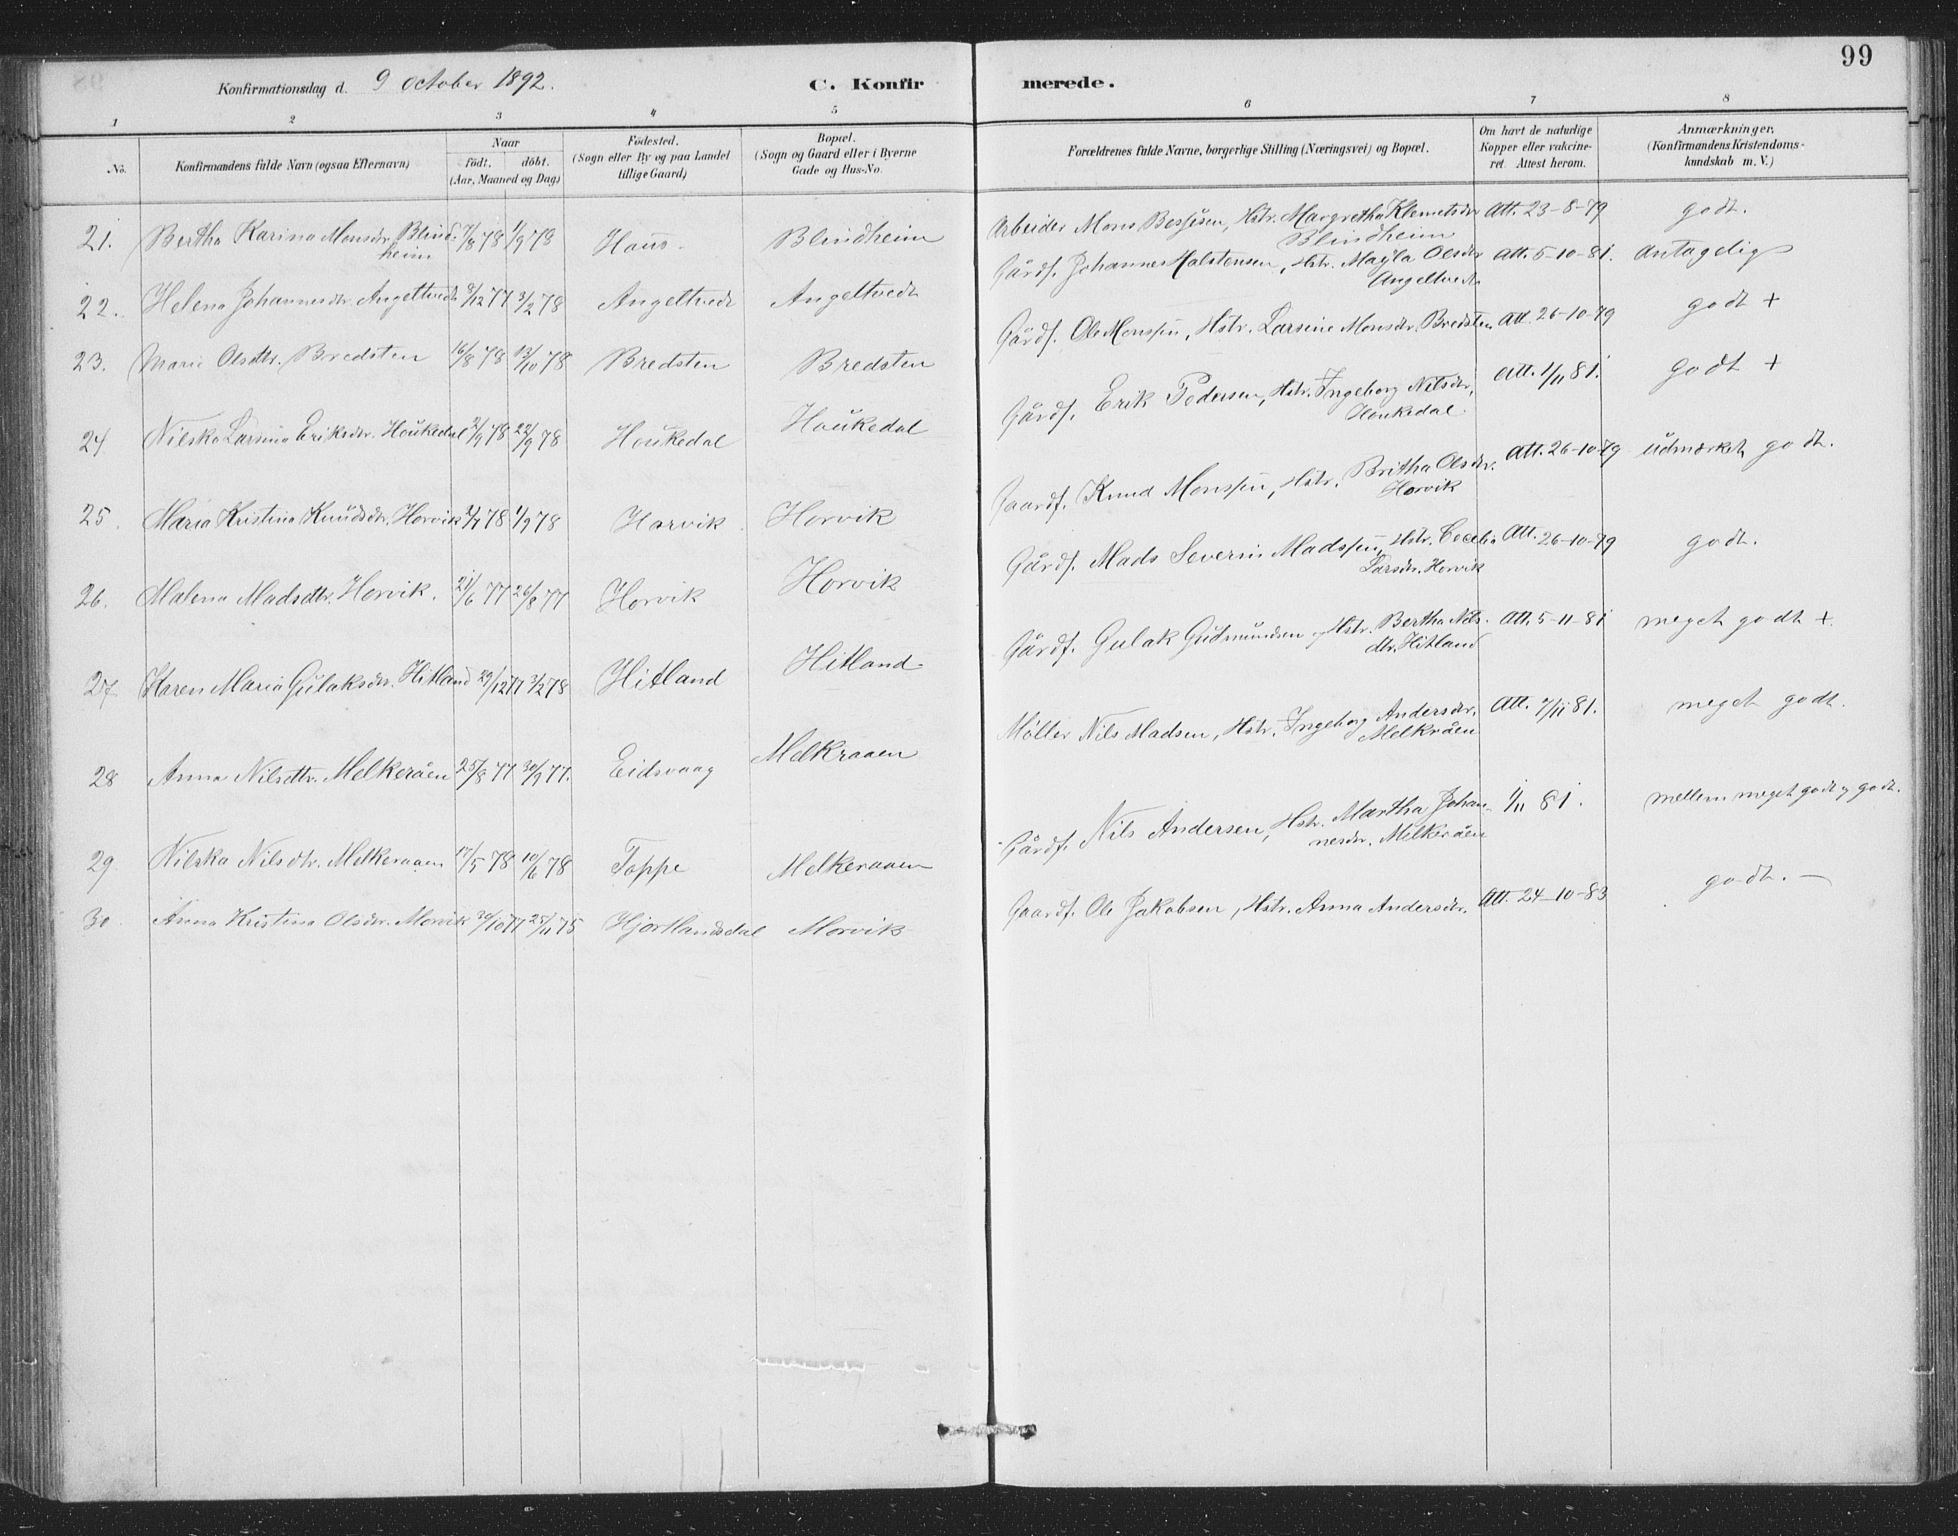 99
Konfirmationsdag d. 9 October 1892.
C. Konfirmerede.
1 2 3 4 5 6 7 8
No.
Konfirmandens fulde Navn (ogsaa Efternavn)
Naar
födt. döbt.
(Aar, Maaned og Dag)
Födested.
(Sogn eller By og paa Landet
tillige Gaard)
Bopæl.
(Sogn og Gaard eller i Byerne
Gade og Hus-No.
Forældrenes fulde Navne, borgerlige Stilling (Næringsvei) og Bopæl.
Om havt de naturlige
Kopper eller vakcine-
ret. Attest herom.
Anmærkninger.
(Konfirmandens Kristendoms-
kundskab m. V.)
21. Bertha Karina Monsdr. Blind- 7/8 78 1/9 78 Haus. Blindheim Arbeider Mons Hstr. Margretha Klemetsdr Att. 23-8-79 godt.
heim Blindheim
22. Helena Johannesdr. Angeltvedt 3/12 77 3/2 78 Angeltvedt Angeltvedt Gårdf. Johannes Halstensen, Hstr. Olsdr Att. 5-10-81. antagelig
Angeltvedt
23. Marie Olsdtr. Bredsten 16/8 78 13/10 78 Bredsten Bredsten Gårdf. Ole Monssen, Hstr. Larsine Monsdr. Bredsten Att. 26-10-79 godt +
24 Nilska Larsina Eriksdr. Houkedal 2/9 78 22/9 78 Houkedal Houkedal Gårdf. Erik Pedersen, Hstr. Ingeborg Nilsdr, Att. 1/11 81. godt +
Houkedal
25. Maria Kristina Knudsdr. Horvik 78 1/9 78 Horvik Horvik Gaardf. Knud Monssen, Hstr. Britha Olsdr. Att. 26-10-79 udmærket godt.
Horvik
26. Malena Madsdtr. Horvik. 21/6 77 26/8 77 Horvik Horvik Gårdf. Mads Severin Madssen, Hstr. Cecelia Att. 26-10-79 godt.
Larsdr. Horvik
27 Karen Maria Gulaksdr. Hitland 29/12 77 3/2 78 Hitland Hitland Gårdf. Gulak Gudmundsen, Hstr. Bertha Nils- Att. 5-11-81 meget godt +
dtr. Hitland
28 Anna Nilsdtr. Melkeråen 25/8 77 30/9 77. Eidsvaag Melkraaen Møller Nils Madsen, Hstr. Ingeborg Andersdr. Att. 7/11 81. meget godt.
Melkråen
29. Nilska Nilsdtr. Melkeraaen 17/5 78 10/6 78 Toppe Melkeraaen Gårdf. Nils Andersen, Hstr. Martha Johan- 1/11 81. mellem meget godt og godt.
nesdr. Melkeråen
30. Anna Kristina Olsdr. Morvik 30/10 77 25/11 75 Hjortlandsdal Morvik Gaardf. Ole Jakobsen, Hstr. Anna Andersdr. Att. 24-10-83 godt. —